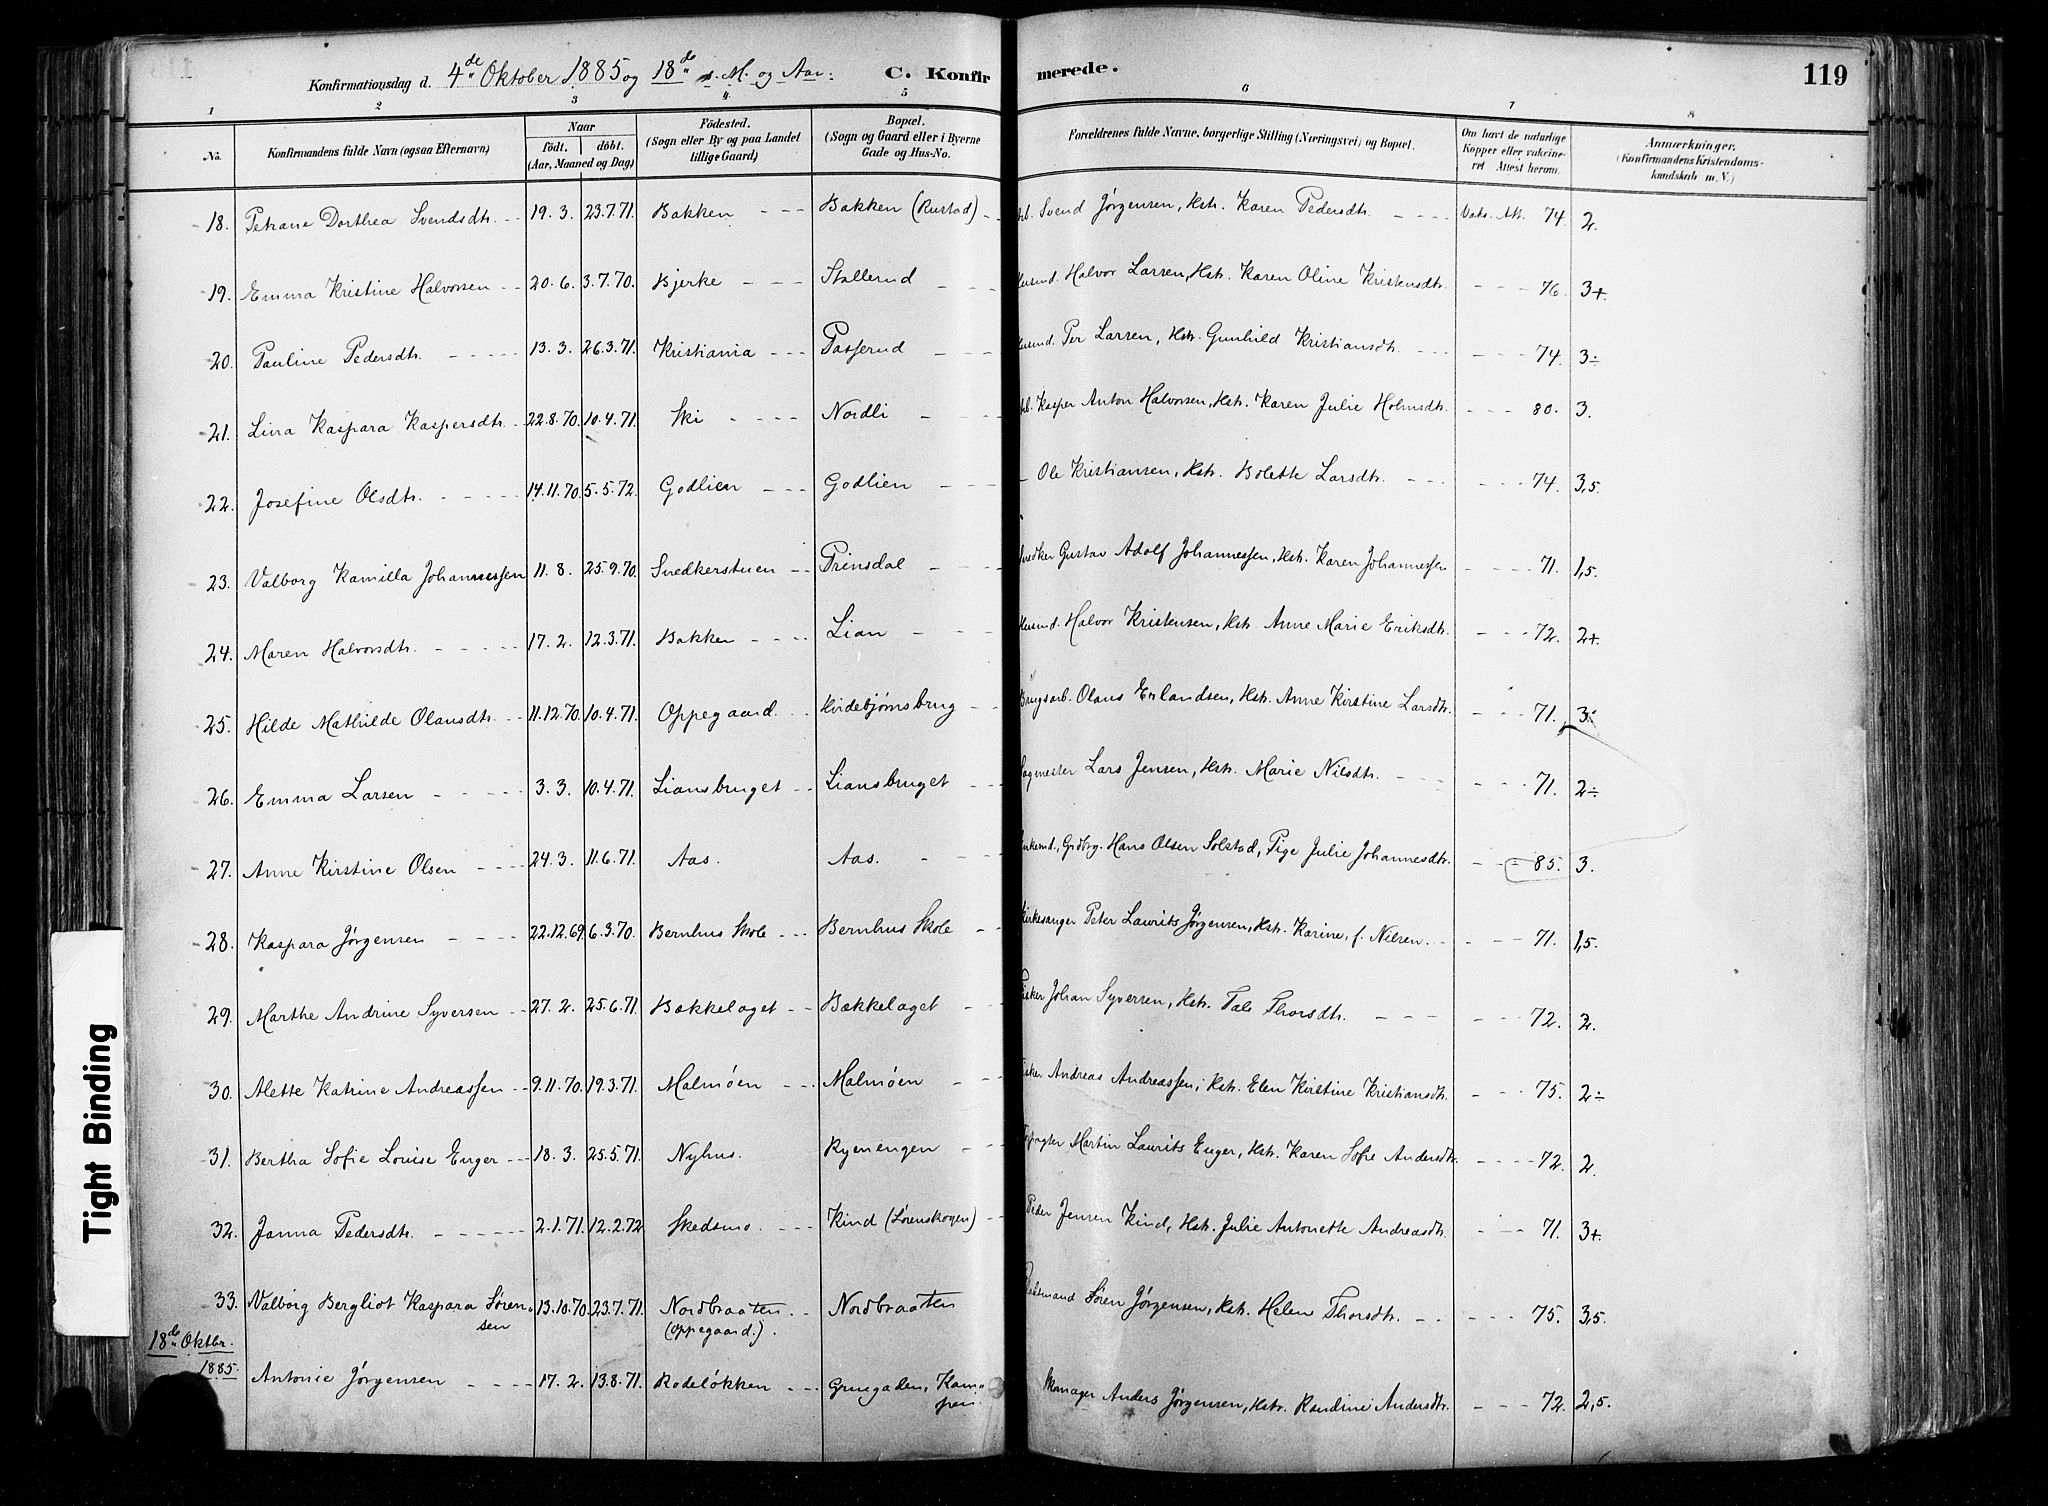 Konfirmationsdag d. 4de Oktober 1885 og 18de s. M. og Aar. C. Konfirmerede. 119
1 2 3 4 5 6 7 8
No. Konfirmandens fulde Navn (ogsaa Efternavn) Naar födt, döbt. (Aar, Maaned og Dag) Födested. (Sogn eller By og paa Landet tillige Gaard) Bopæl. (Sogn og Gaard eller i Byerne Gade og Hus-No. Forældrenes fulde Navne, borgerlige Stilling (Næringsvei) og Bopæl. Om havt de naturlige Kopper eller vakcineret Attest herom. Anmærkninger. (Konfirmandens Kristendomskundskab m. V.)
18. Petrane Dorthea Svendsdtr. 19. 3. 23.7.71. Bakken Bakken (Rustad) Svend Jørgensen, Kstr. Karen Pedersdtr. Vaks. Att. 74. 2.
19. Emma Kristine Halvorsen 20. 6. 3.7.70. Bjerke Stallerud Halvor Larsen, Kstr. Karen Oline Kristensdtr. 76. 3+.
20. Pauline Pedersdtr. 13. 3. 26.3.71. Kristiania Tasserud Per Larsen, Kstr. Gunhild Kristiansdtr. 74. 3÷
21. Lina Kaspara Kaspersdtr. 22.8.70. 10.4.71. Ski Nordli Kasper Anton Halvorsen, Kstr. Karen Julie Holmsdtr. 80. 3.
22. Josefine Olsdtr. 14.11.70. 5.5.72. Godlien Godlien Ole Kristiansen, Kstr. Bolette Larsdtr. 74. 3,5.
23. Valborg Kamilla Johannessen 11. 8. 25.9.70. Snedkerstuen Prinsdal Snedker Gustav Adolf Johannessen, Kstr. Karen Johannessen 71. 1,5.
24. Maren Halvorsdtr. 17. 2. 12.3.71. Bakken Lian Halvor Kristensen, Kstr. Anne Marie Eriksdtr. 72. 2+
25. Hilde Mathilde Olausdtr. 11.12.70. 10.4.71. Oppegaard. Hvidebjørnsbrug Brugsarb. Olaus Erlandsen, Kstr. Anne Kirstine Larsdtr. 71. 3÷
26. Emma Larsen 3. 3. 10.4.71. Liansbruget Liansbruget Sagmester Lars Jensen, Kstr. Marie Nilsdtr. 71. 2÷
27. Anne Kirstine Olsen 24. 3. 11.6.71. Aas. Aas. Hans Olsen Solstad, Pige Julie Johannesdtr. 85. 3.
28. Kaspara Jørgensen 22.12.69. 6.3.70. Bernhus Skole Bernhus Skole Kirkesanger Peter Laurits Jørgensen, Kstr. Karine, f. Nilsen. 71. 1,5.
29. Marthe Andrine Syversen 27. 2. 25.6.71. Bækkelaget Bækkelaget Fisker Johan Syversen, Kstr. Tale Thorsdtr. 72. 2.
30. Alette Katrine Andreassen 9.11.70. 19.3.71. Malmøen Malmøen Fisker Andreas Andreassen, Kstr. Elen Kirstine Kristiansdtr. 75. 2÷
31. Bertha Sofie Louise Enger 18. 3. 25.5.71. Nyhus. Ryenengen Martin Laurits Enger, Kstr. Karen Sofie Andersdtr. 72. 2.
32. Janna Pedersdtr. 2.1.71. 12.2.72. Skedsmo. Kind (Lørenskogen) Peder Jensen Kind, Kstr. Julie Antonette Andreasdtr. 71. 3+.
33. Valborg Bergliot Kaspara Sørensen 13.10.70. 23.7.71. Nordbraaten (Oppegaard.). Nordbraaten Søren Jørgensen, Kstr. Helene Thorsdtr. 75. 3,5.
18de Oktbr. 1885. Antonie Jørgensen 17. 2. 13.8.71. Rodeløkken Gruegaden, Kampen. Anders Jørgensen, Kstr. Randine Andersdtr. 72. 2,5.
Tight Binding